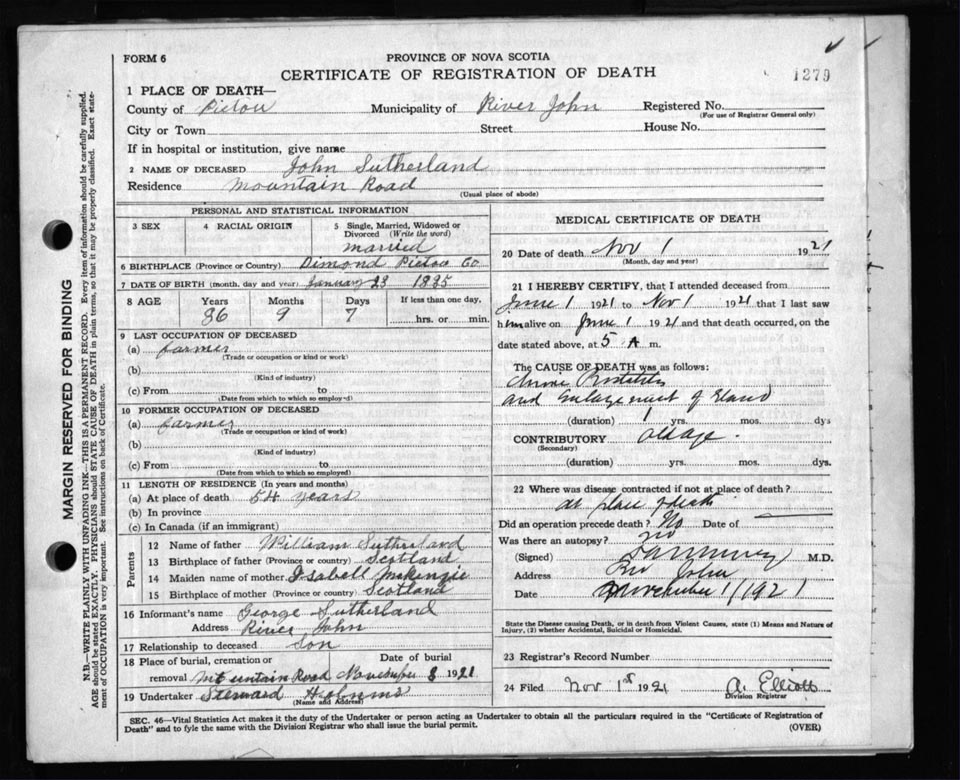 FORM 6
PROVINCE OF NOVA SCOTIA
CERTIFICATE OF REGISTRATION OF DEATH
1279
1 PLACE OF DEATH—
County of Pictou Municipality of River John Registered No.
(For use of Registrar General only)
City or Town Street House No.
If in hospital or institution, give name
2 NAME OF DECEASED John Sutherland
Residence Mountain Road
(Usual place of abode)
MARGIN RESERVED FOR BINDING
N.B.—WRITE PLAINLY WITH UNFADING INK—THIS IS A PERMANENT RECORD. Every item of information should be carefully supplied.
AGE should be stated EXACTLY. PHYSICIANS should STATE CAUSE OF DEATH in plain terms, so that it may be properly classified. Exact state-
ment of OCCUPATION is very important. See instructions on back of Certificate.
PERSONAL AND STATISTICAL INFORMATION
3 SEX 4 RACIAL ORIGIN 5 Single, Married, Widowed or
Divorced (Write the word)
married
6 BIRTHPLACE (Province or Country) Dimond Pictou Co
7 DATE OF BIRTH (month, day and year) January 23 1835
8 AGE Years Months Days If less than one day,
86 9 7 hrs. or min.
9 LAST OCCUPATION OF DECEASED
(a) farmer
(Trade or occupation or kind of work)
(b)
(Kind of industry)
(c) From to
(Date from which to which so employed)
10 FORMER OCCUPATION OF DECEASED
(a) farmer
(Trade or occupation or kind of work)
(b)
(Kind of industry)
(c) From to
(Date from which to which so employed)
11 LENGTH OF RESIDENCE (In years and months)
(a) At place of death 54 years
(b) In province
(c) In Canada (if an immigrant)
Parents
12 Name of father William Sutherland
13 Birthplace of father (Province or country) Scotland
14 Maiden name of mother Isabell McKenzie
15 Birthplace of mother (Province or country) Scotland
16 Informant's name George Sutherland
Address River John
17 Relationship to deceased Son
18 Place of burial, cremation or Date of burial
removal Mountain Road November 3 1921
19 Undertaker
(Name and Address)
MEDICAL CERTIFICATE OF DEATH
20 Date of death Nov 1 1921
(Month, day and year)
21 I HEREBY CERTIFY, that I attended deceased from
June 1 1921 to Nov 1 1921 that I last saw
him alive on June 1 1921 and that death occurred, on the
date stated above, at 5 A m.
The CAUSE OF DEATH was as follows:
and Enlargement of Gland
(duration) 1 yrs. mos. dys
CONTRIBUTORY old age.
(Secondary)
(duration) yrs. mos. dys.
22 Where was disease contracted if not at place of death?
at place of death
Did an operation precede death? No Date of
Was there an autopsy? no
(Signed) M.D.
Address Riv John
Date November 1/1921
State the Disease causing Death, or in death from Violent Causes, state (1) Means and Nature of
Injury, (2) whether Accidental, Suicidal or Homicidal.
23 Registrar's Record Number
24 Filed Nov 1st 1921 A. Elliott
Division Registrar
SEC. 46—Vital Statistics Act makes it the duty of the Undertaker or person acting as Undertaker to obtain all the particulars required in the "Certificate of Registration of
Death" and to fyle the same with the Division Registrar who shall issue the burial permit.
(OVER)